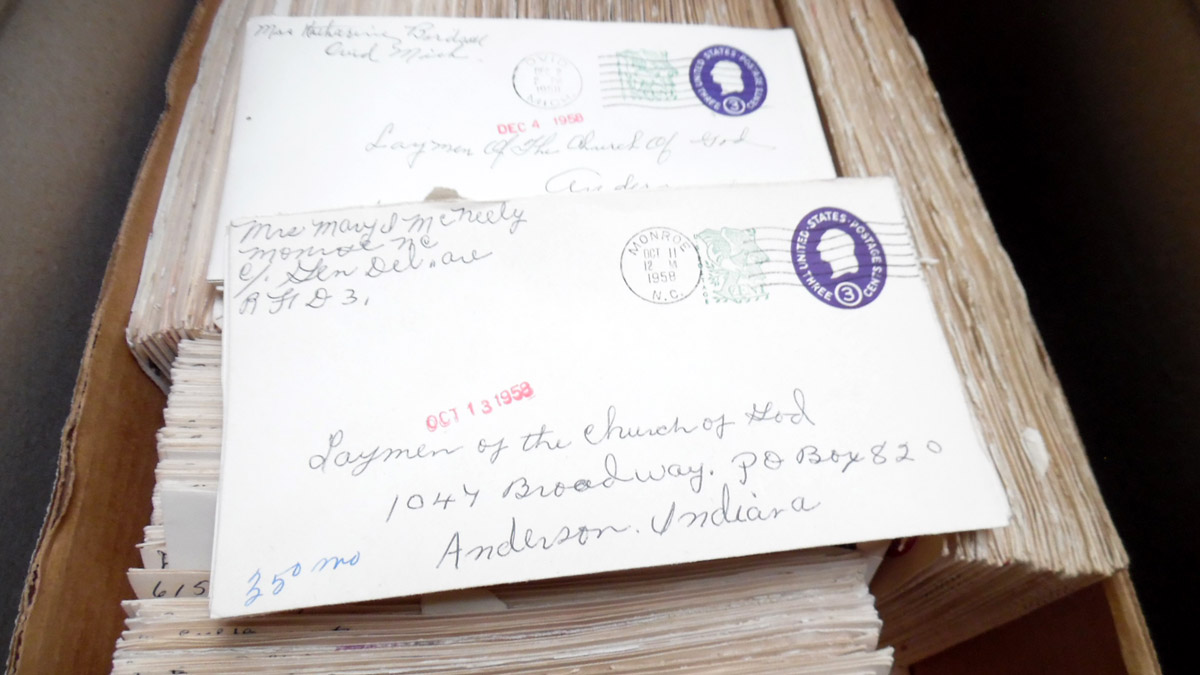 Mrs Katherine
Ovid Mich.
OVID
1958
MICH
UNITED STATES POSTAGE
THREE 3 CENTS
DEC 4 1958
Laymen Of The Church Of God
Mrs Mary J McNeely
Monroe NC
c/o Gen Del. are
R F D 3.
MONROE
OCT 11
12 M
1958
N.C.
UNITED STATES POSTAGE
THREE 3 CENTS
OCT 13 1958
Laymen of the Church of God
1047 Broadway. PO Box 820
Anderson. Indiana
350 mo
615